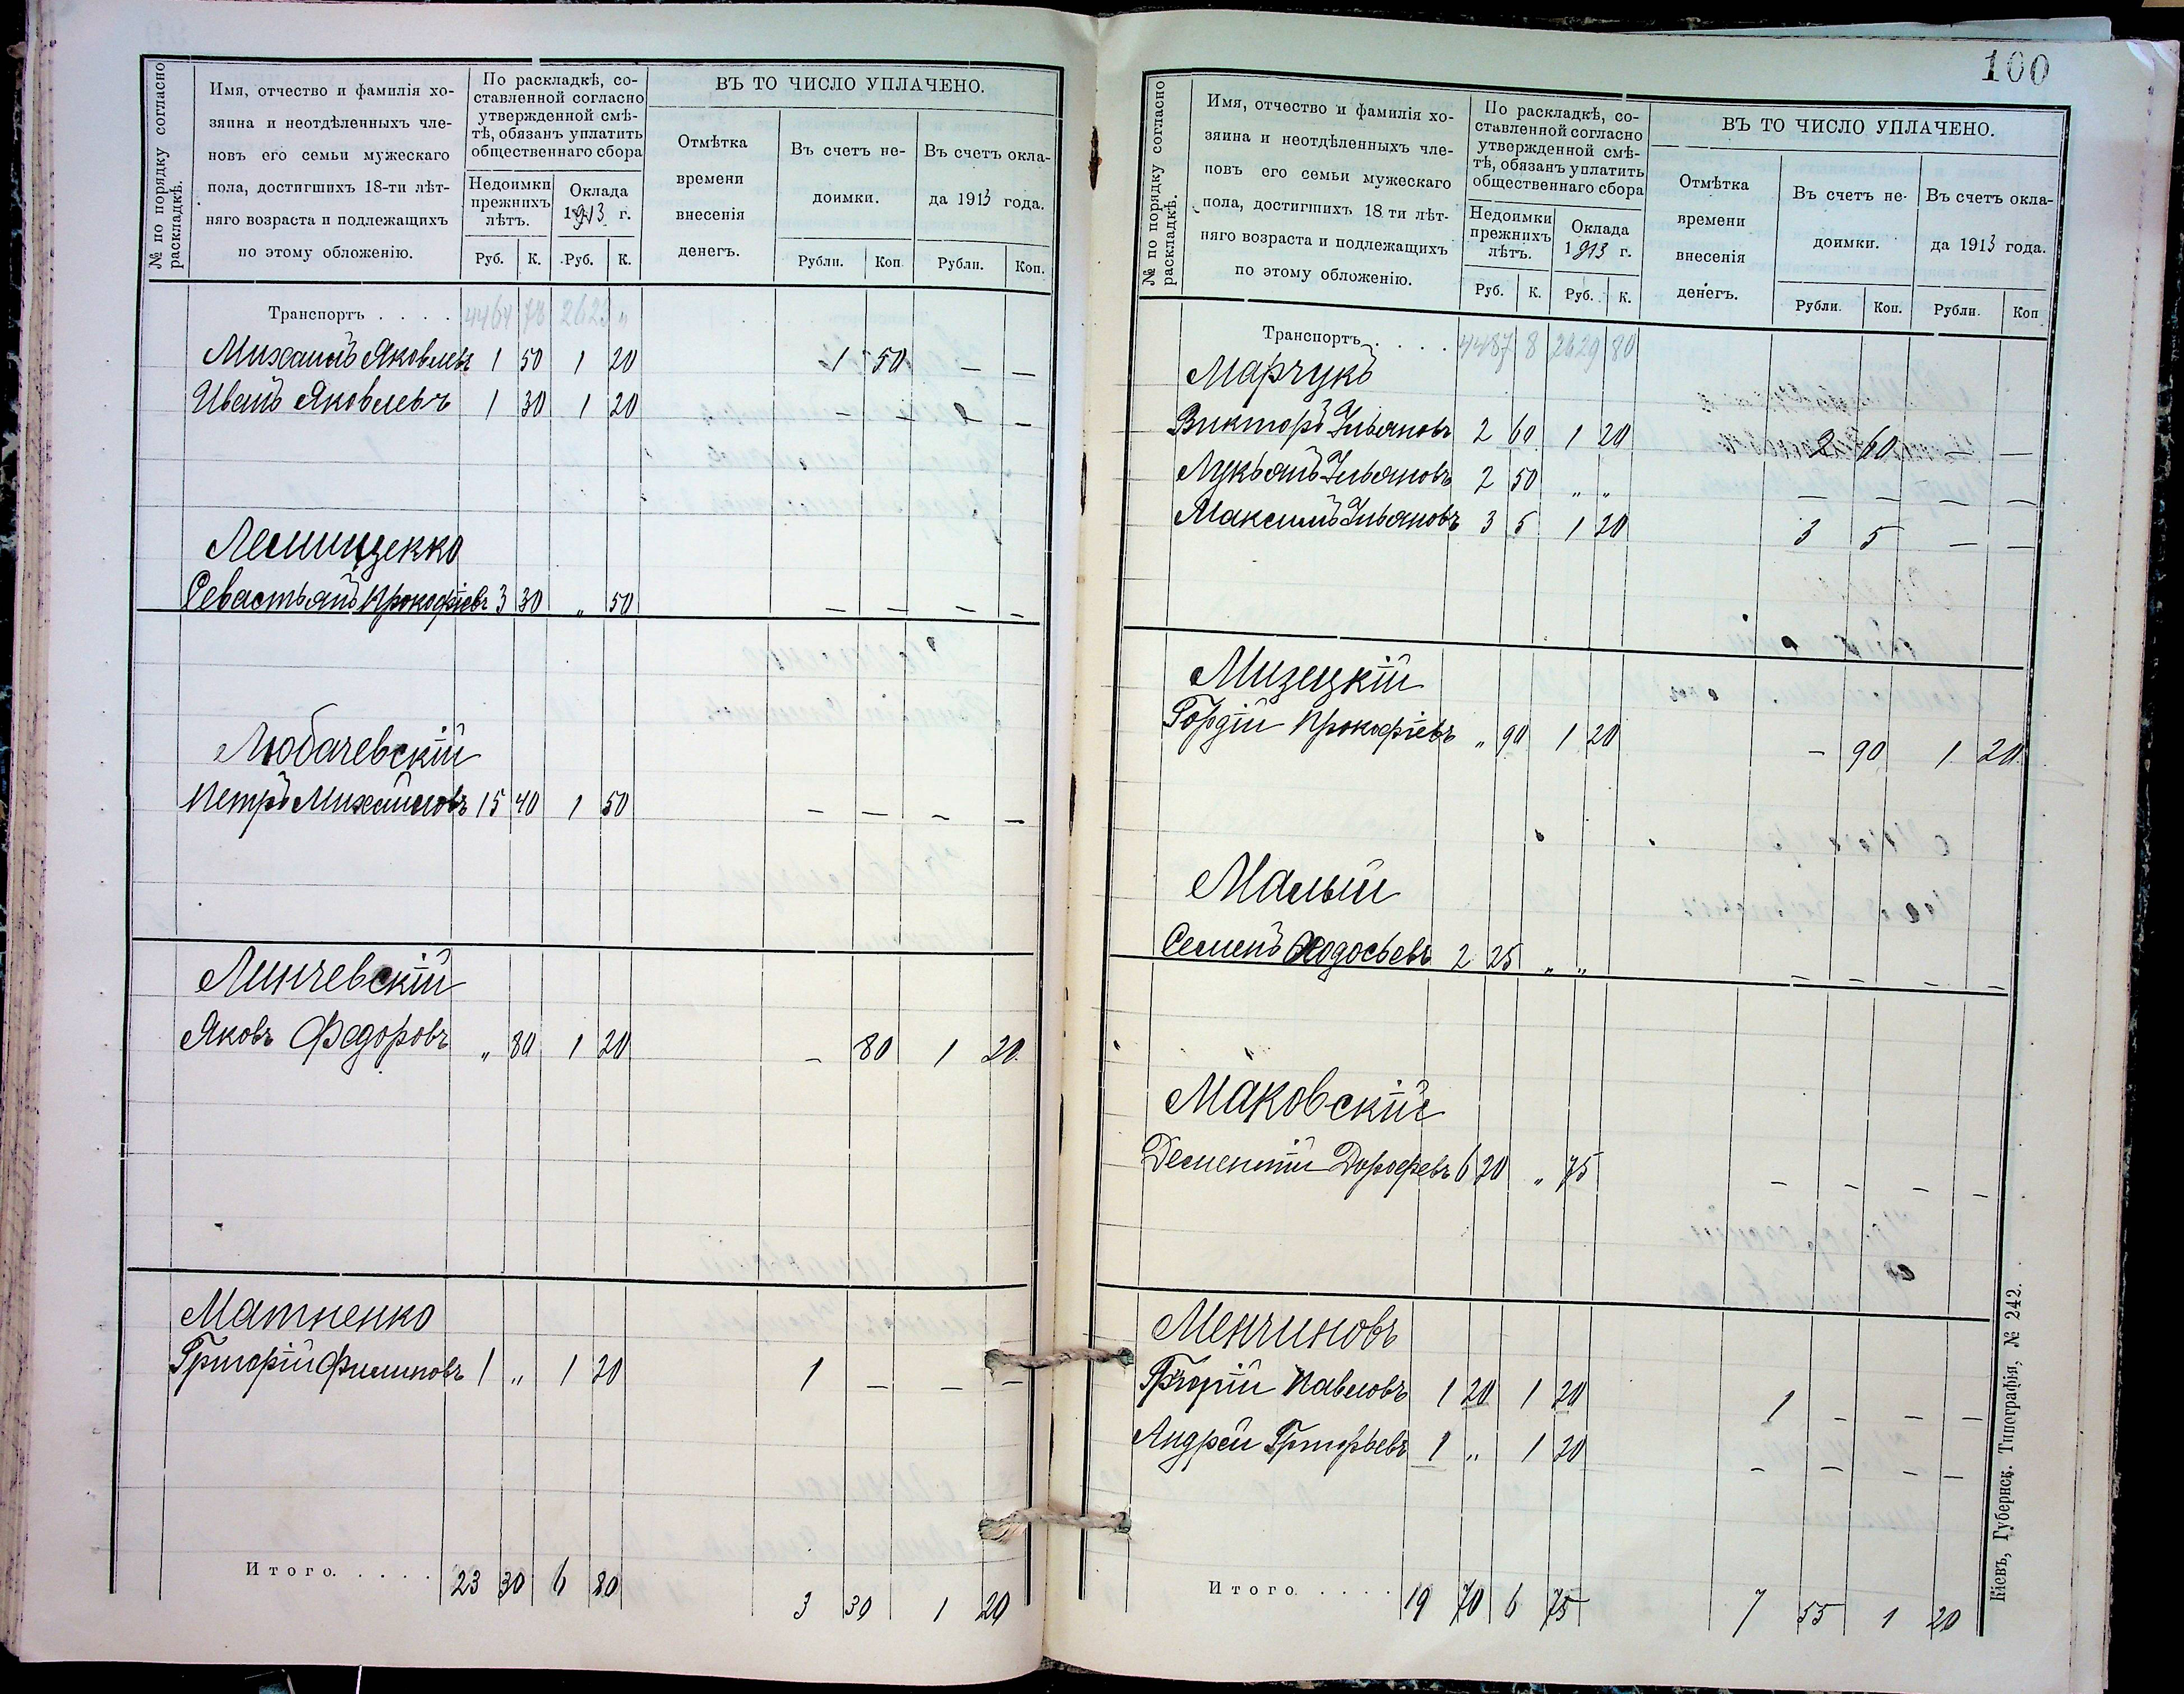 № по порядку согласно раскладкѣ.
Имя, отчество и фамилія хозяина и неотдѣленныхъ членовъ его семьи мужескаго пола, достигшихъ 18-ти лѣтняго возраста и подлежащихъ по этому обложенію.
По раскладкѣ, составленной согласно утвержденной смѣтѣ, обязанъ уплатить общественнаго сбора
Недоимки прежнихъ лѣтъ.
Оклада 1913 г.
Руб. К. Руб. К.
ВЪ ТО ЧИСЛО УПЛАЧЕНО.
Отмѣтка времени внесенія денегъ.
Въ счетъ недоимки.
Въ счетъ оклада 1913 года.
Рубли. Коп. Рубли. Коп.
Транспортъ . . . . 4464 78 2623 „
Михаилъ Яковлевъ 1 50 1 20 1 50 — —
Иванъ Яковлевъ 1 30 1 20 — — — —
Лемищенко
Севастьянъ Прокофіевъ 3 30 „ 50 — — — —
Любачевскій
Петръ Михайловъ 15 40 1 50 — — — —
Линчевскій
Яковъ Федоровъ „ 80 1 20 — 80 1 20
Матненко
Григорій Филиповъ 1 „ 1 20 1 — — —
Итого. . . . . 23 30 6 80 3 30 1 20
100
№ по порядку согласно раскладкѣ.
Имя, отчество и фамилія хозяина и неотдѣленныхъ членовъ его семьи мужескаго пола, достигшихъ 18 ти лѣтняго возраста и подлежащихъ по этому обложенію.
По раскладкѣ, составленной согласно утвержденной смѣтѣ, обязанъ уплатить общественнаго сбора
Недоимки прежнихъ лѣтъ.
Оклада 1913 г.
Руб. К. Руб. К.
ВЪ ТО ЧИСЛО УПЛАЧЕНО.
Отмѣтка времени внесенія денегъ.
Въ счетъ недоимки.
Въ счетъ оклада 1913 года.
Рубли. Коп. Рубли. Коп
Транспортъ . . . . 4487 8 2629 80
Марчукъ
Викторъ Ульяновъ 2 60 1 20 2 60 — —
Лукьянъ Ульяновъ 2 50 „ „ — — — —
Максимъ Ульяновъ 3 5 1 20 3 5 — —
Мизецкій
Гордій Прокофіевъ „ 90 1 20 — 90 1 20
Малый
Семенъ Ѳодосьевъ 2 25 „ „ — — — —
Маковскій
Дементій Дорофевъ 6 20 „ 75 — — — —
Менчиновъ
Павловъ 1 20 1 20 1 — — —
Андрей Григорьевъ 1 „ 1 20 — — — —
Итого . . . . 19 70 6 75 7 55 1 20
Кіевъ, Губернск. Типографія, № 242.